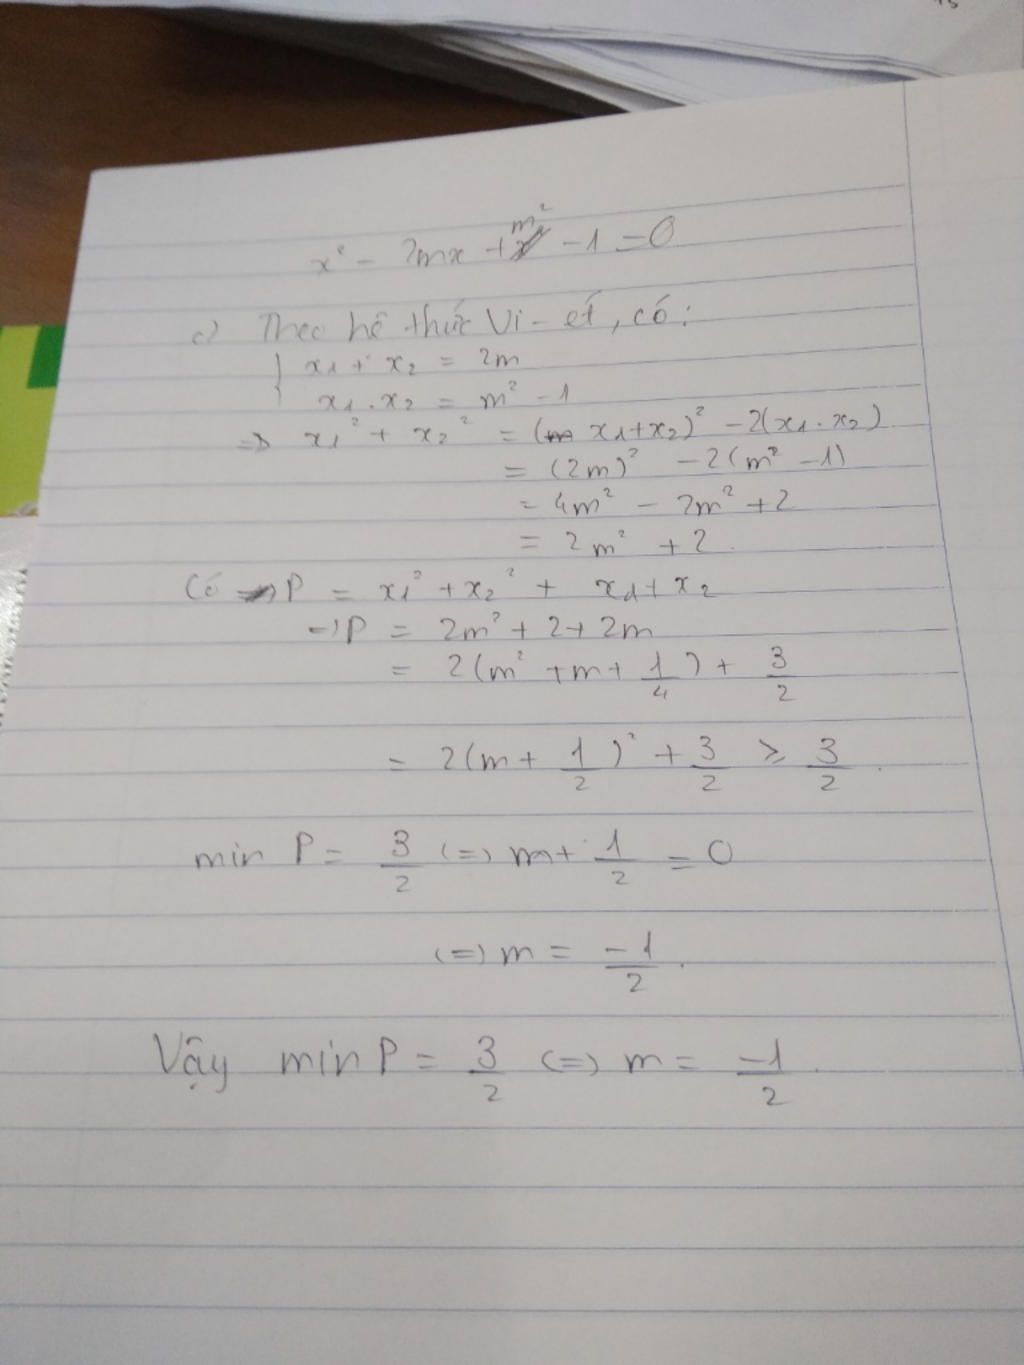 x² - 2mx + m² - 1 = 0
c) Theo hệ thức Vi-ét, có:
{ x1 + x2 = 2m
x1 . x2 = m² - 1
=> x1² + x2² = (x1+x2)² - 2(x1.x2)
= (2m)² - 2(m² - 1)
= 4m² - 2m² + 2
= 2m² + 2.
Có P = x1² + x2² + x1 + x2
=> P = 2m² + 2 + 2m
= 2(m² + m + 1/4) + 3/2
= 2(m + 1/2)² + 3/2 ≥ 3/2.
min P = 3/2 (=) m + 1/2 = 0
(=) m = -1/2.
Vậy min P = 3/2 (=) m = -1/2.